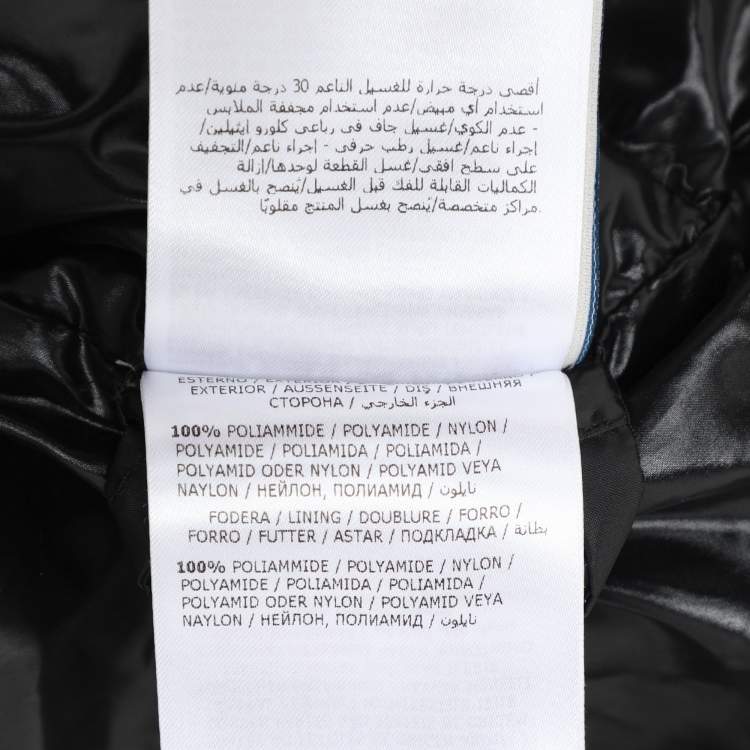 أقصى درجة حرارة للغسيل الناعم 30 درجة مئوية/عدم
استخدام أي مبيض/عدم استخدام مجففة الملابس
- عدم الكوي/غسيل جاف في رباعي كلورو ايثيلين/
اجراء ناعم/غسيل رطب حرفي - اجراء ناعم/التجفيف
على سطح افقي/غسل القطعة لوحدها/إزالة
الكماليات القابلة للفك قبل الغسيل/يُنصح بالغسل في
مراكز متخصصة/يُنصح بغسل المنتج مقلوبًا.
ESTERNO /
EXTERIOR / AUSSENSEITE / DIŞ / ВНЕШНЯЯ
СТОРОНА / الجزء الخارجي
100% POLIAMMIDE / POLYAMIDE / NYLON /
POLYAMIDE / POLIAMIDA / POLIAMIDA /
POLYAMID ODER NYLON / POLYAMID VEYA
NAYLON / НЕЙЛОН, ПОЛИАМИД / نايلون
FODERA / LINING / DOUBLURE / FORRO /
FORRO / FUTTER / ASTAR / ПОДКЛАДКА / بطانة
100% POLIAMMIDE / POLYAMIDE / NYLON /
POLYAMIDE / POLIAMIDA / POLIAMIDA /
POLYAMID ODER NYLON / POLYAMID VEYA
NAYLON / НЕЙЛОН, ПОЛИАМИД / نايلون